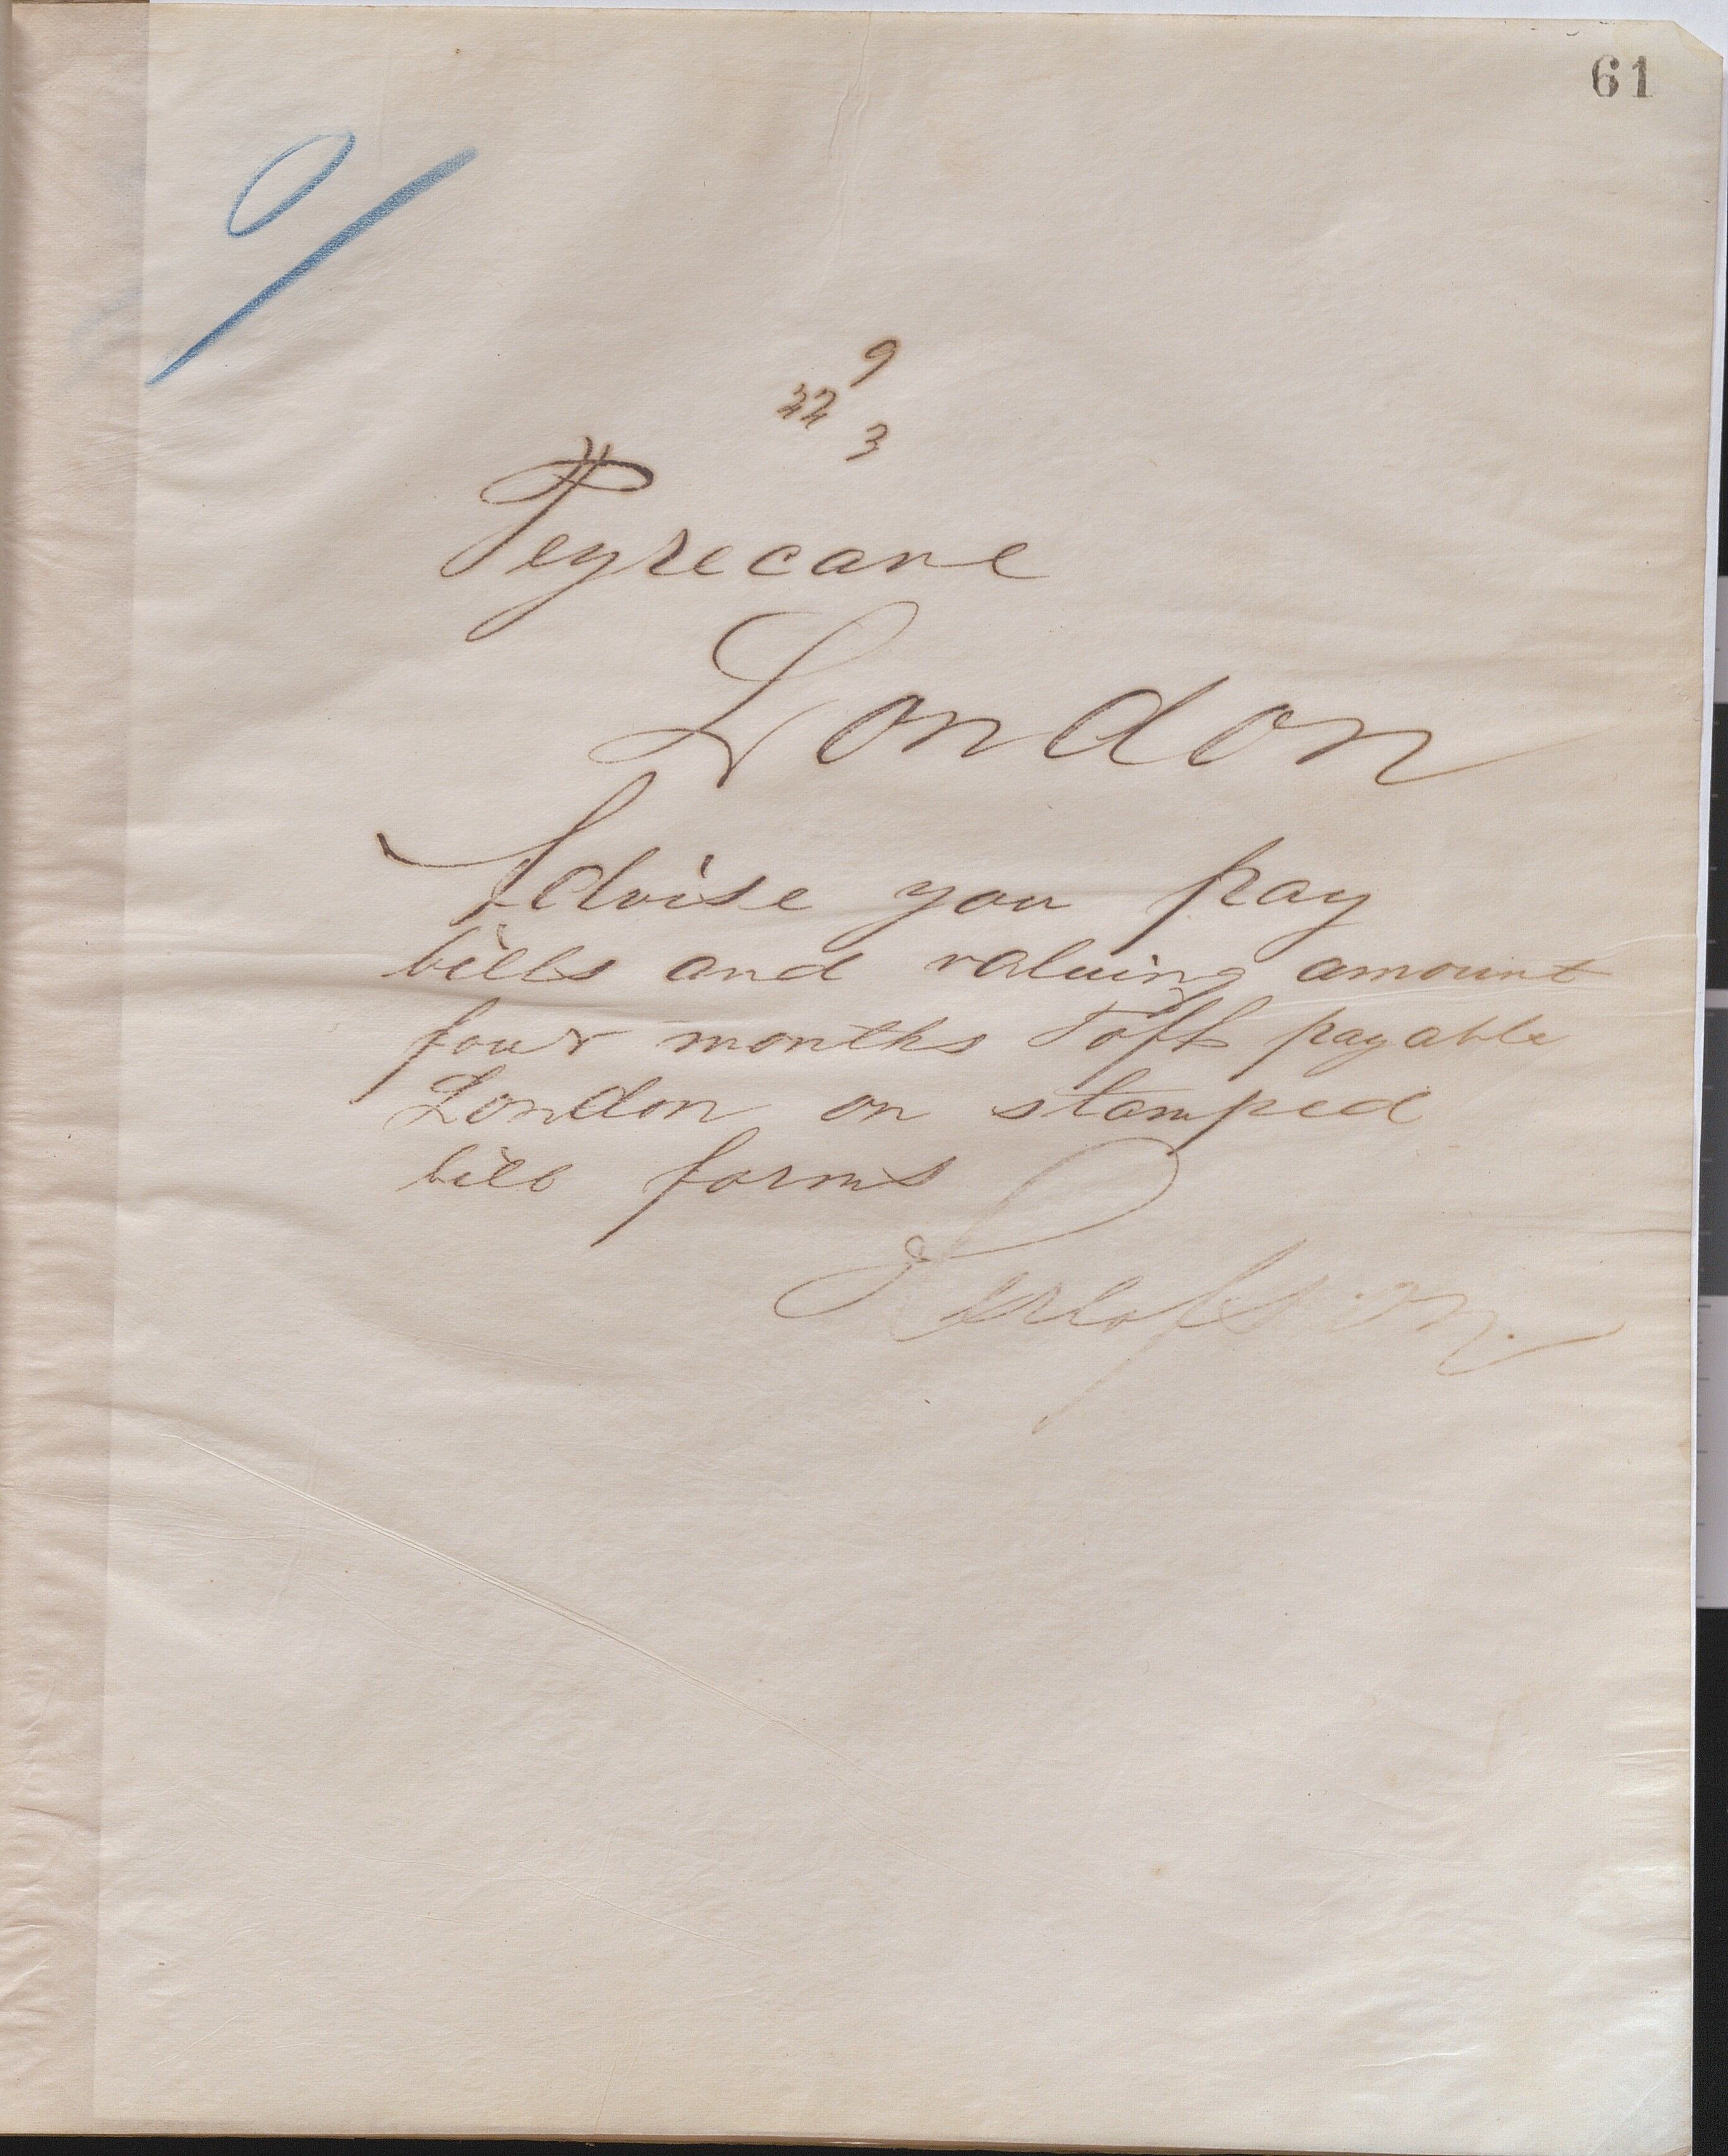 61
9
22 3
Peyrecave
London
Advise you pay
bills and valuing amount
four months Toft payable
London on stamped
bill forms
Herlofson.